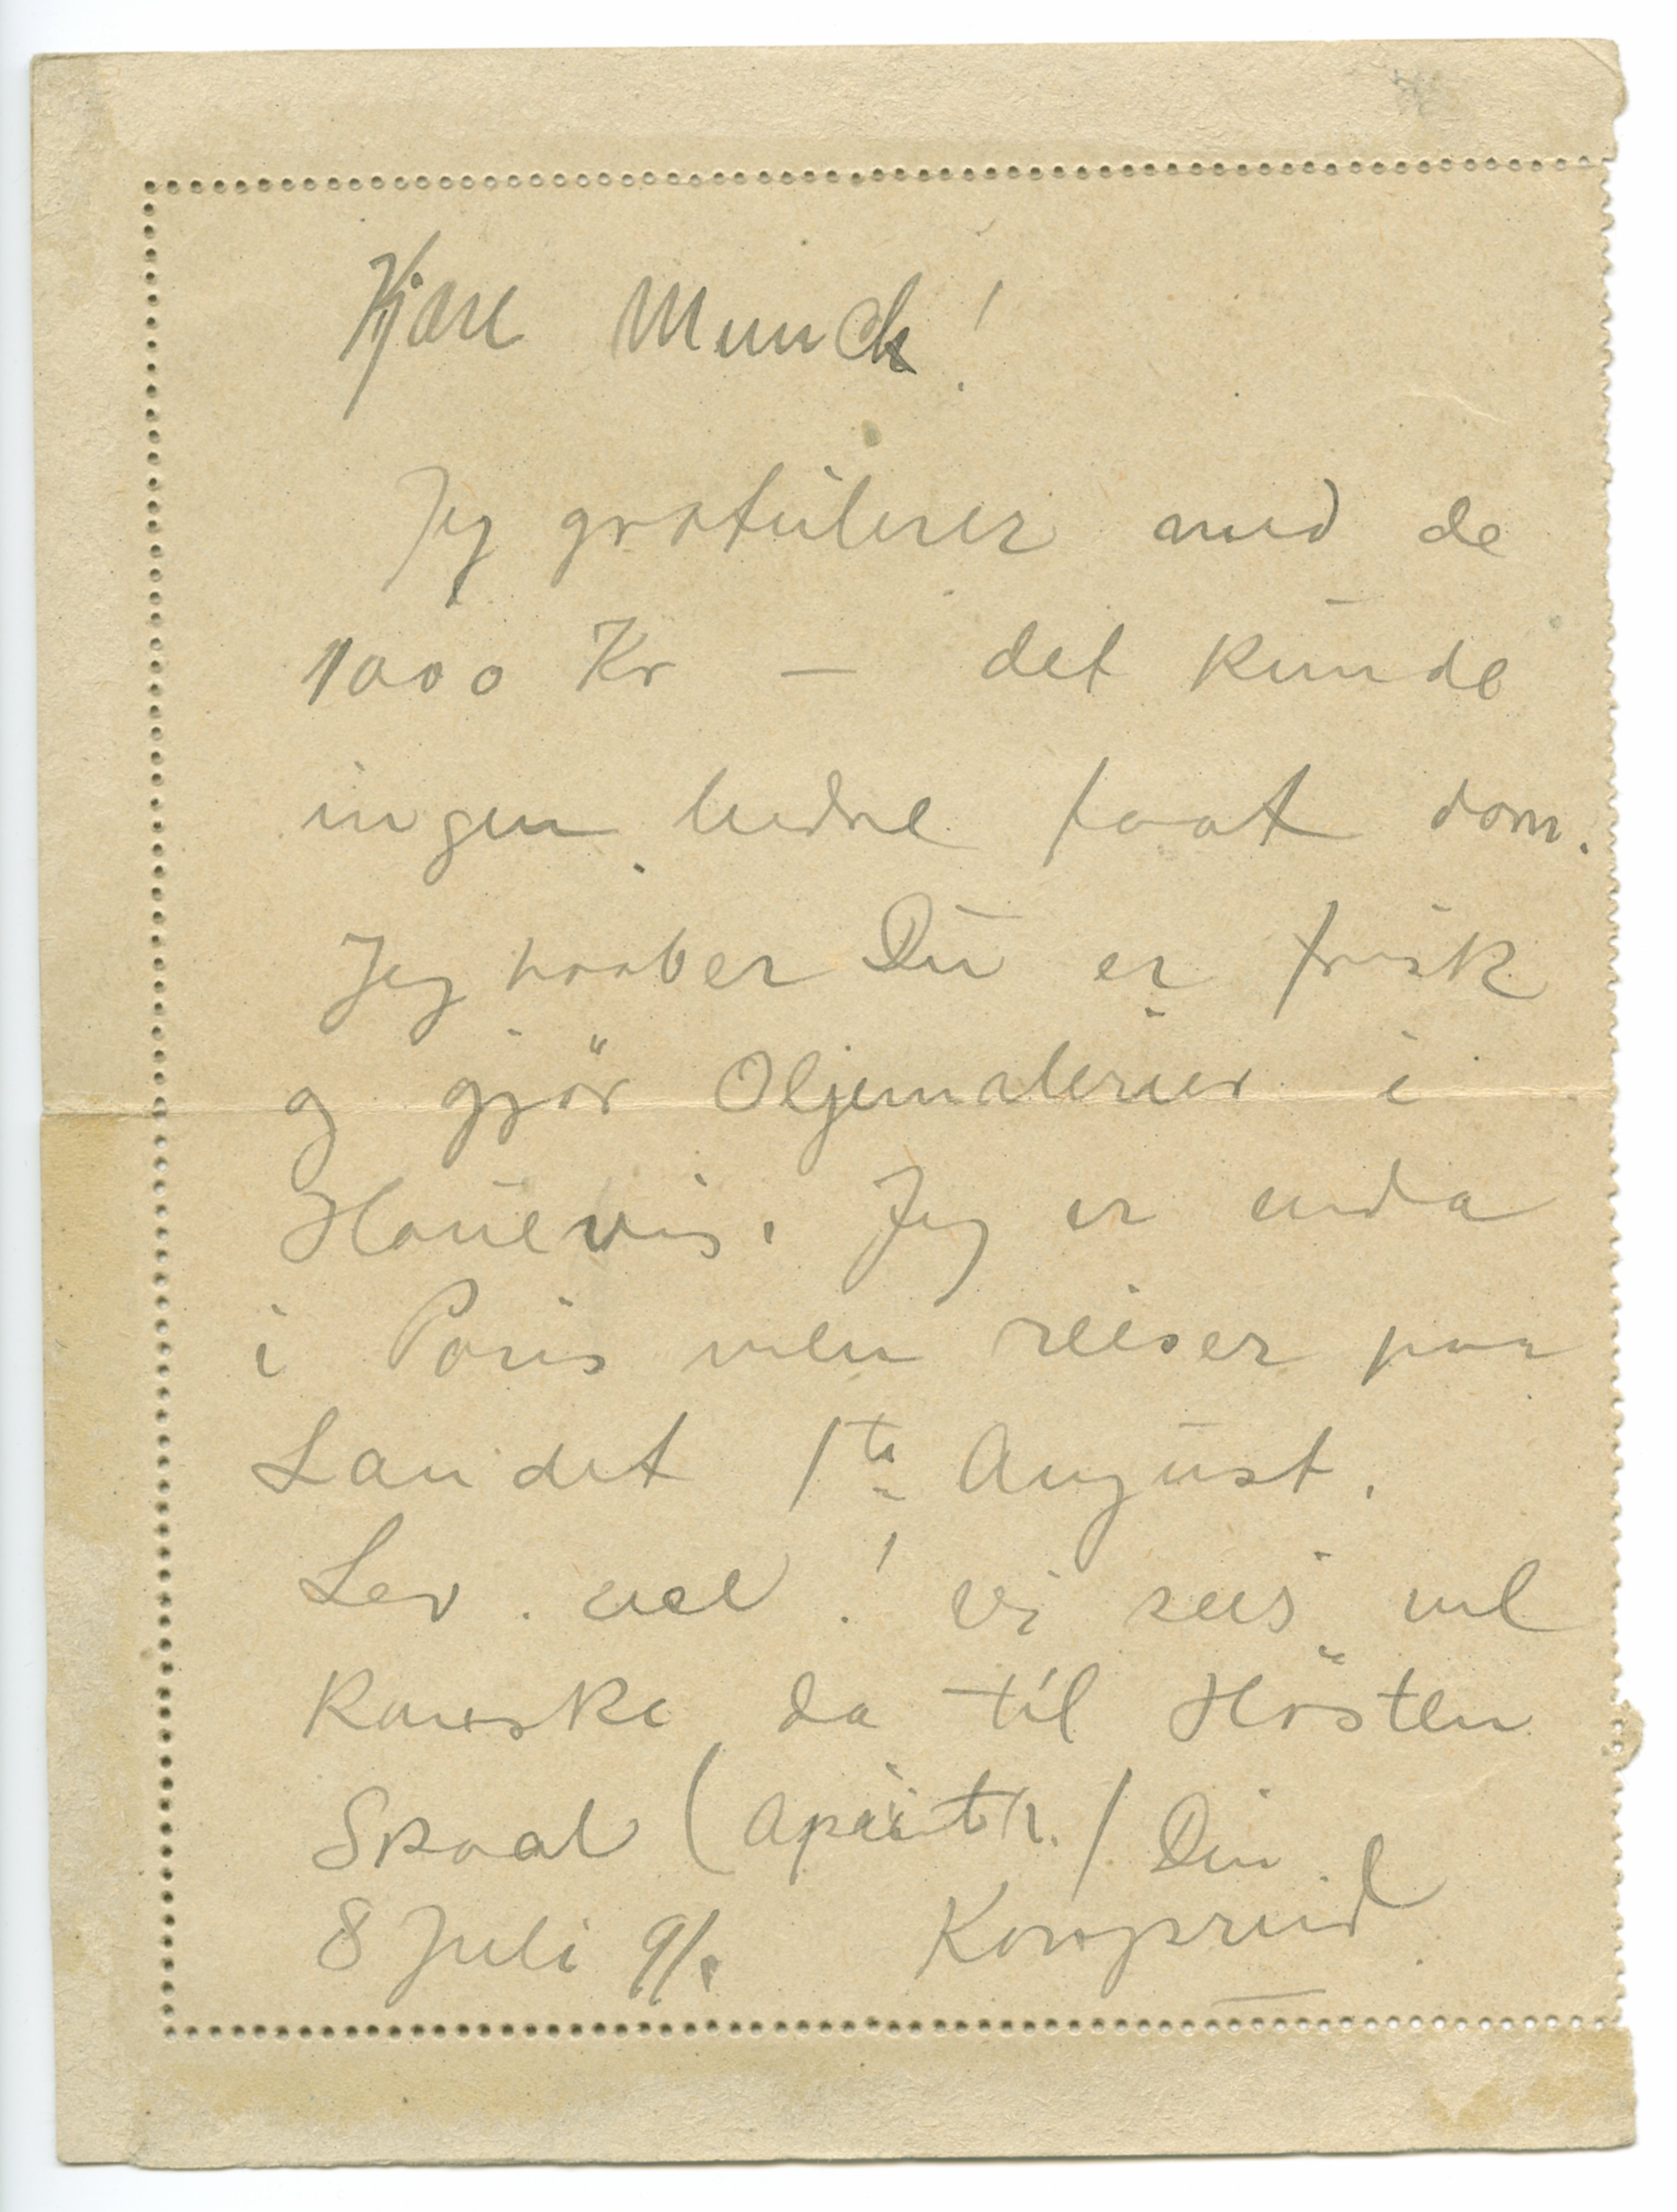 Kjære Munch!
Jeg gratulerer med de
1000 Kr — det kunde
ingen bedre faat dom.
Jeg haaber Du er frisk
og gjör Oljemalerier i
Houevis. Jeg er enda
i Paris men reiser paa
Landet 1ste August.
Lev vel! vi sees vel
kanske da til Hösten
Skaal (aperitifr.) Din
8 Juli 91. Kavsprud